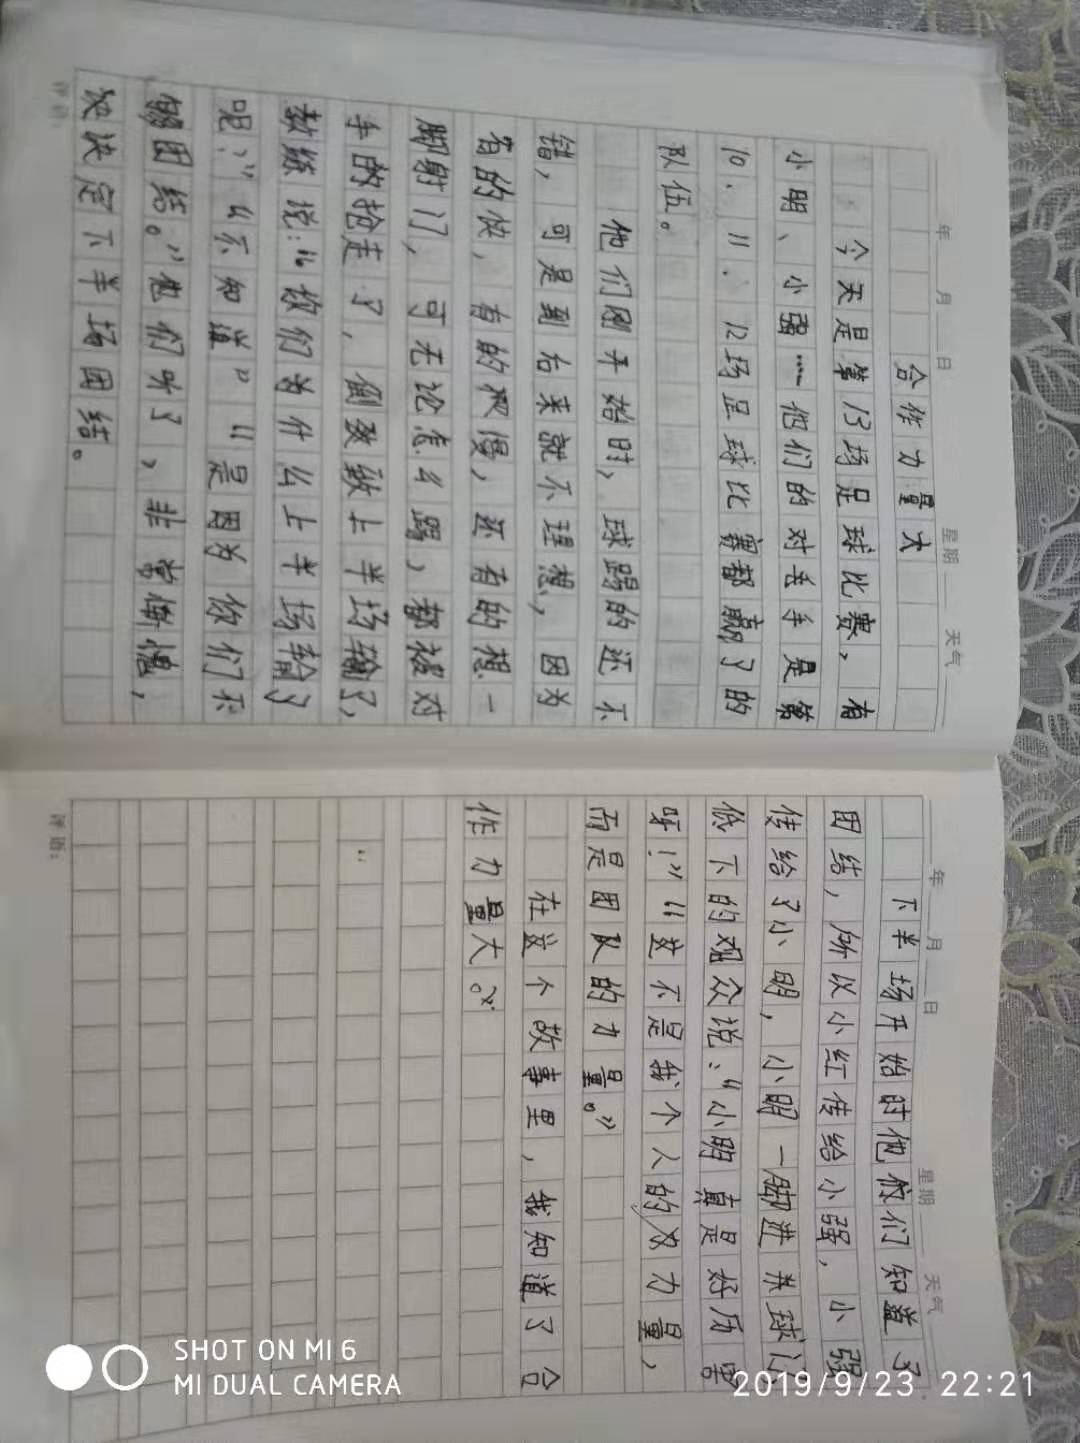 年 月 日 星期 天气
合作力量大
今天是第13场足球比赛，有
小明、小强……他们的对手是第
10、11、12场足球比赛都赢了的
队伍。
他们刚开始时，球踢的还不
错，可是到后来就不理想，因为
有的快，有的很慢，还有的想一
脚射门，可无论怎么踢，都被对
手的抢走了，倒致上半场输了，
教练说：“你们为什么上半场输了
呢？”“不知道”“是因为你们不
够团结。”他们听了，非常惭愧，
决定下半场团结。
评语：
年 月 日 星期 天气
下半场开始时他们知道了
团结，所以小红传给小强，小强
传给了小明，小明一脚进球门
低下的观众说：“小明真是好历害
呀！”“这不是我个人的力量，
而是团队的力量。”
在这个故事里，我知道了合
作力量大。
评语：
SHOT ON MI 6
MI DUAL CAMERA
2019/9/23 22:21